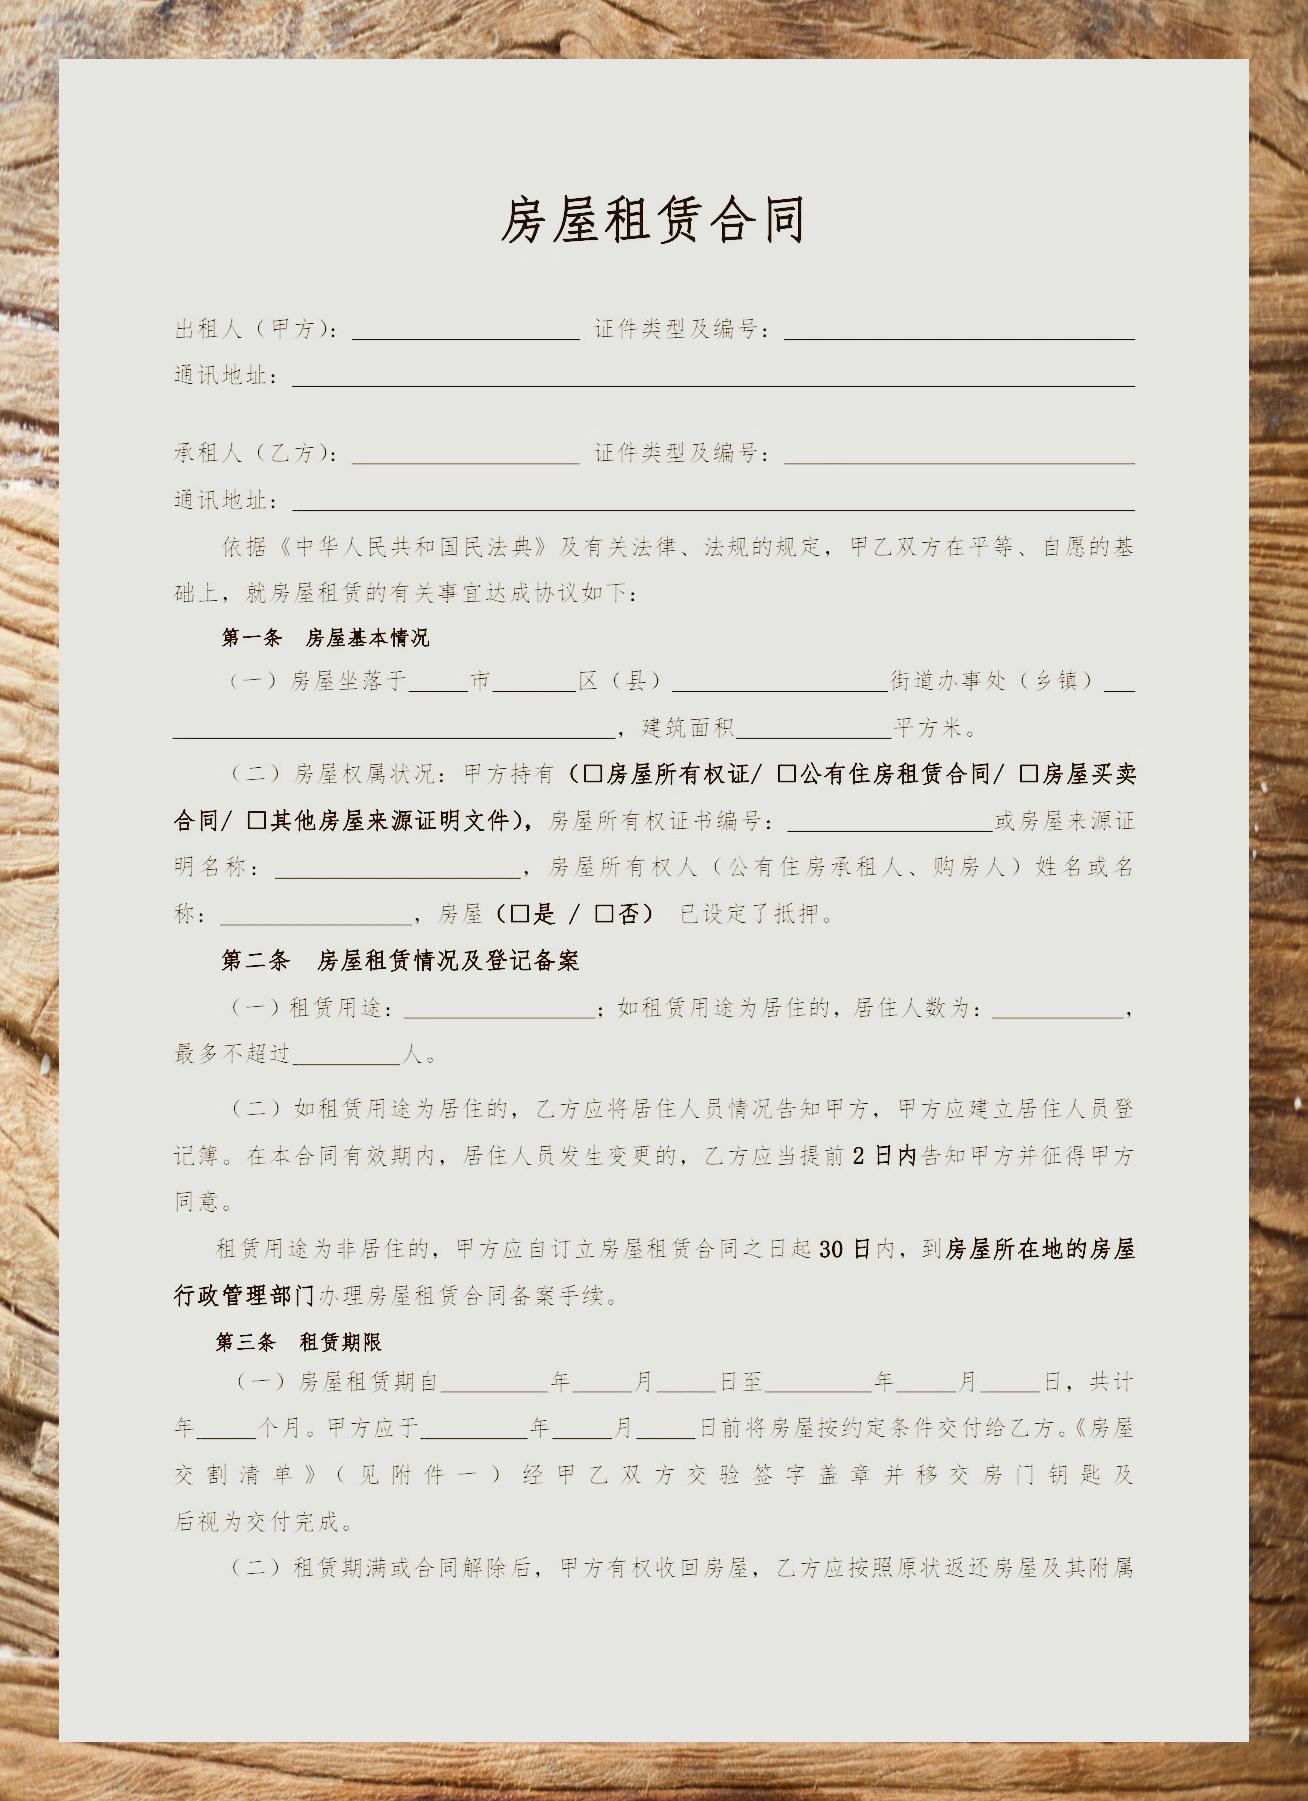 房屋租赁合同
出租人（甲方）：____________ 证件类型及编号：____________
通讯地址：____________
承租人（乙方）：____________ 证件类型及编号：____________
通讯地址：____________
依据《中华人民共和国民法典》及有关法律、法规的规定，甲乙双方在平等、自愿的基
础上，就房屋租赁的有关事宜达成协议如下：
第一条 房屋基本情况
（一）房屋坐落于_____市_______区（县）__________________街道办事处（乡镇）___
____________，建筑面积_____________平方米。
（二）房屋权属状况：甲方持有（□房屋所有权证/ □公有住房租赁合同/ □房屋买卖
合同/ □其他房屋来源证明文件），房屋所有权证书编号：_________________或房屋来源证
明名称：____________________，房屋所有权人（公有住房承租人、购房人）姓名或名
称：________________，房屋（□是 / □否） 已设定了抵押。
第二条 房屋租赁情况及登记备案
（一）租赁用途：________________；如租赁用途为居住的，居住人数为：___________，
最多不超过_________人。
（二）如租赁用途为居住的，乙方应将居住人员情况告知甲方，甲方应建立居住人员登
记簿。在本合同有效期内，居住人员发生变更的，乙方应当提前 2 日内告知甲方并征得甲方
同意。
租赁用途为非居住的，甲方应自订立房屋租赁合同之日起 30 日内，到房屋所在地的房屋
行政管理部门办理房屋租赁合同备案手续。
第三条 租赁期限
（一）房屋租赁期自_________年_____月_____日至_________年_____月_____日，共计
年_____个月。甲方应于_________年_____月_____日前将房屋按约定条件交付给乙方。《房屋
交割清单》（见附件一）经甲乙双方交验签字盖章并移交房门钥匙及
后视为交付完成。
（二）租赁期满或合同解除后，甲方有权收回房屋，乙方应按照原状返还房屋及其附属